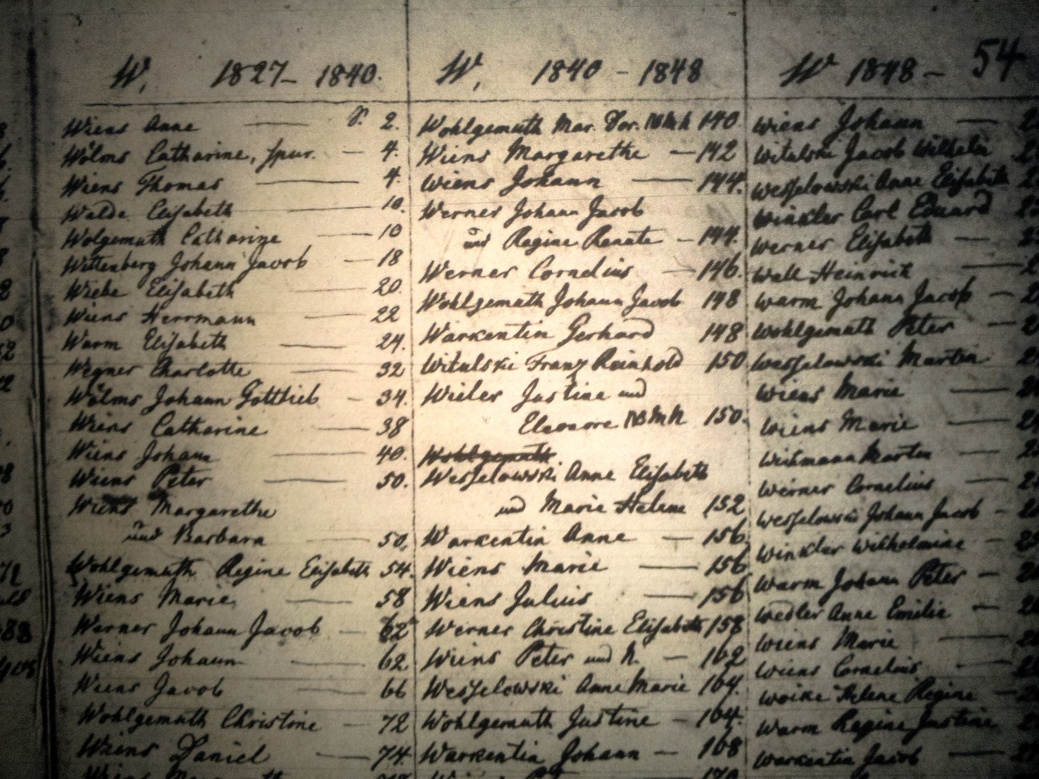 54
W, 1827- 1840.
Wiens Anne S. 2.
Wölms Catharine, spur. - 4.
Wiens Thomas 4.
Walde Elisabeth 10.
Wolgemuth Catharine 10
Wittenberg Johann Jacob - 18
Wiebe Elisabeth 20.
Wiens Herrmann 22
Warm Elisabeth 24.
Wegner Charlotte 32
Wölms Johann Gottlieb - 34.
Wiens Catharine 38
Wiens Johann 40.
Wiens Peter 50.
Wiens Margarethe
und Barbara 50.
Wohlgemuth Regine Elisabeth 54.
Wiens Marie 58
Werner Johann Jacob - 62
Wiens Johann 62.
Wiens Jacob 66
Wohlgemuth Christine 72
Wiens Daniel 74.
W, 1840 - 1848
Wohlgemuth Mar. Dor. 140
Wiens Margarethe - 142
Wiens Johann 144.
Werner Johann Jacob
und Regine Renate - 144.
Werner Cornelius - 146.
Wohlgemuth Johann Jacob 148
Warkentin Gerhard 148
Witulski Franz Reinhold 150
Wieler Justine und
Eleonore 150.
Wohlgemuth
Wesselowski Anne Elisabeth
und Marie Helene 152
Warkentin Anne - 156.
Wiens Marie 156
Wiens Julius 156
Werner Christine Elisabeth 158
Wiens Peter und - 162
Wesselowski Anne Marie 164.
Wohlgemuth Justine - 164.
Warkentin Johann - 168
W 1848 -
Wiens Johann
Witulski Jacob Wilhelm
Wesselowski Anne Elisabeth
Winkler Carl Eduard
Werner Elisabeth
Wall Heinrich
Warm Johann Jacob
Wohlgemuth Peter
Wesselowski Martin
Wiens Marie
Wiens Marie
Martin
Werner Cornelius
Wesselowski Johann Jacob
Winkler Wilhelmine
Warm Johann Peter
Wedler Anne Emilie
Wiens Marie
Wiens Cornelius
Helene Regine
Warm Regine Justine
Warkentin Jacob